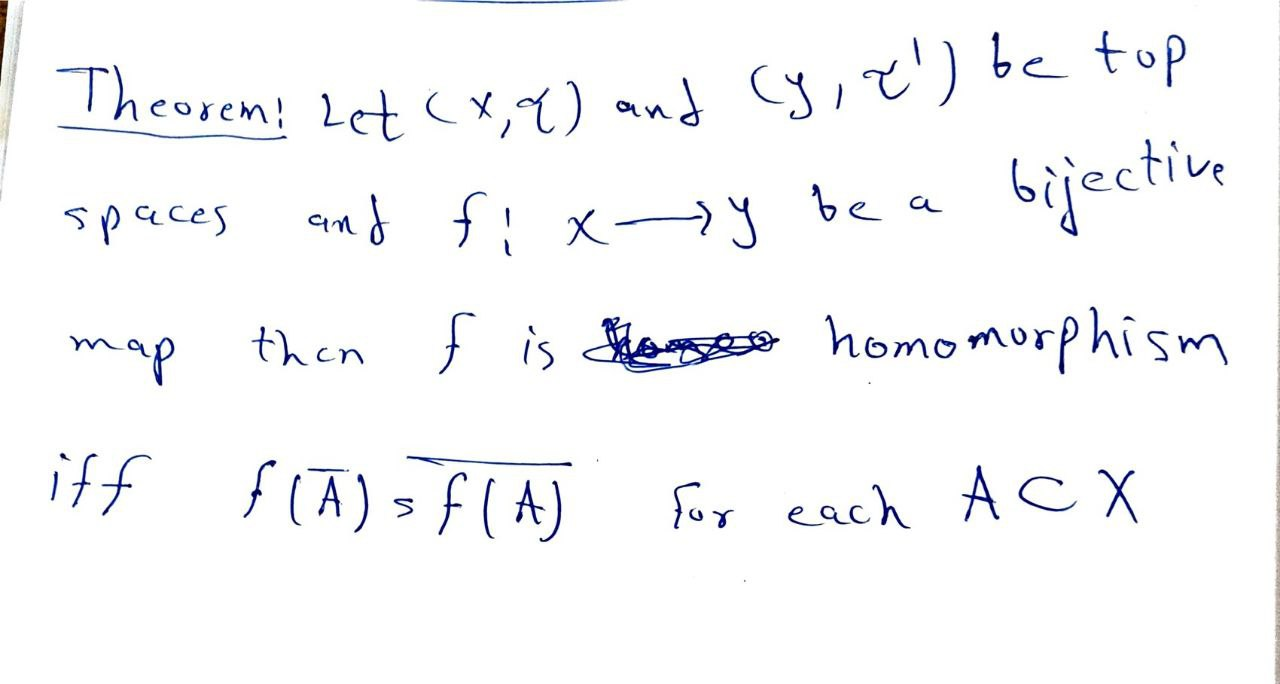 Theorem: Let (X, τ) and (y, τ') be top
spaces and f: x → y be a bijective
map then f is homomorphism
iff f(A̅) = \overline{f(A)} for each A ⊂ X